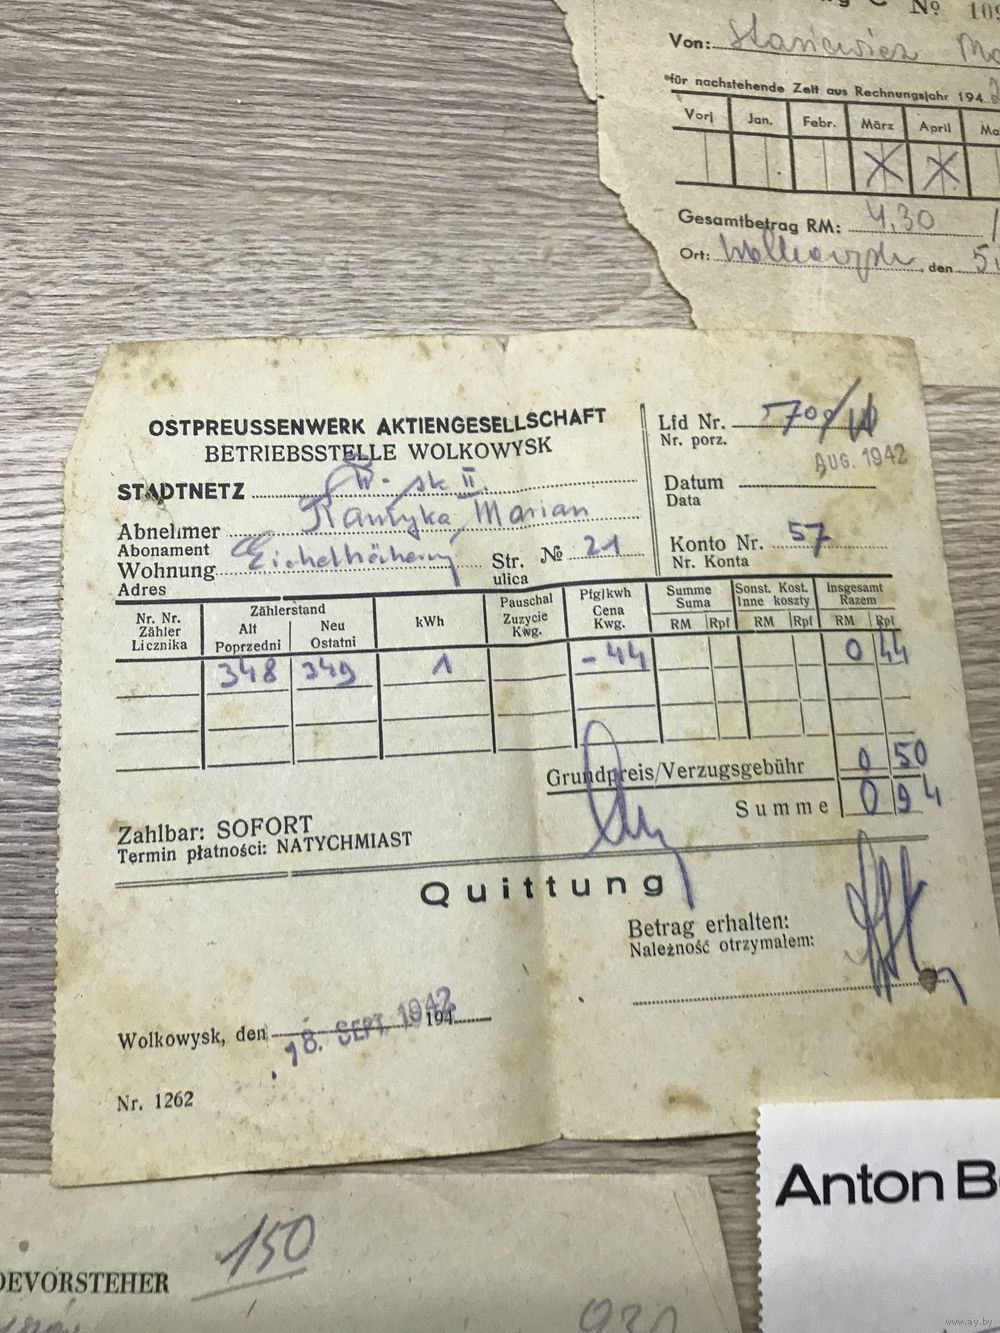 Nº 109
Von: Staniewicz
für nachstehende Zeit aus Rechnungsjahr 194
Vorj Jan. Febr. März April Ma
X X
Gesamtbetrag RM: 4,30
Ort: Wolkowysk, den 5.
OSTPREUSSENWERK AKTIENGESELLSCHAFT
BETRIEBSSTELLE WOLKOWYSK
STADTNETZ W-sk II.
Abnehmer Marian
Abonament
Wohnung Str. № 21
Adres ulica
Lfd Nr. 570/
Nr. porz.
AUG. 1942
Datum
Data
Konto Nr. 57
Nr. Konta
Nr. Nr. Zähler Licznika
Zählerstand
Alt Poprzedni
Neu Ostatni
kWh
Pauschal Zuzycie Kwg.
Pfg/kwh Cena Kwg.
Summe Suma
RM Rpf
Sonst. Kost. Inne koszty
RM Rpf
Insgesamt Razem
RM Rpf
348 349 1 -44 0 44
Grundpreis/Verzugsgebühr 0 50
Summe 0 94
Zahlbar: SOFORT
Termin płatności: NATYCHMIAST
Quittung
Betrag erhalten:
Należność otrzymałem:
Wolkowysk, den 18. SEPT. 1942 194
Nr. 1262
Anton B
150
DEVORSTEHER
930
www.ay.by